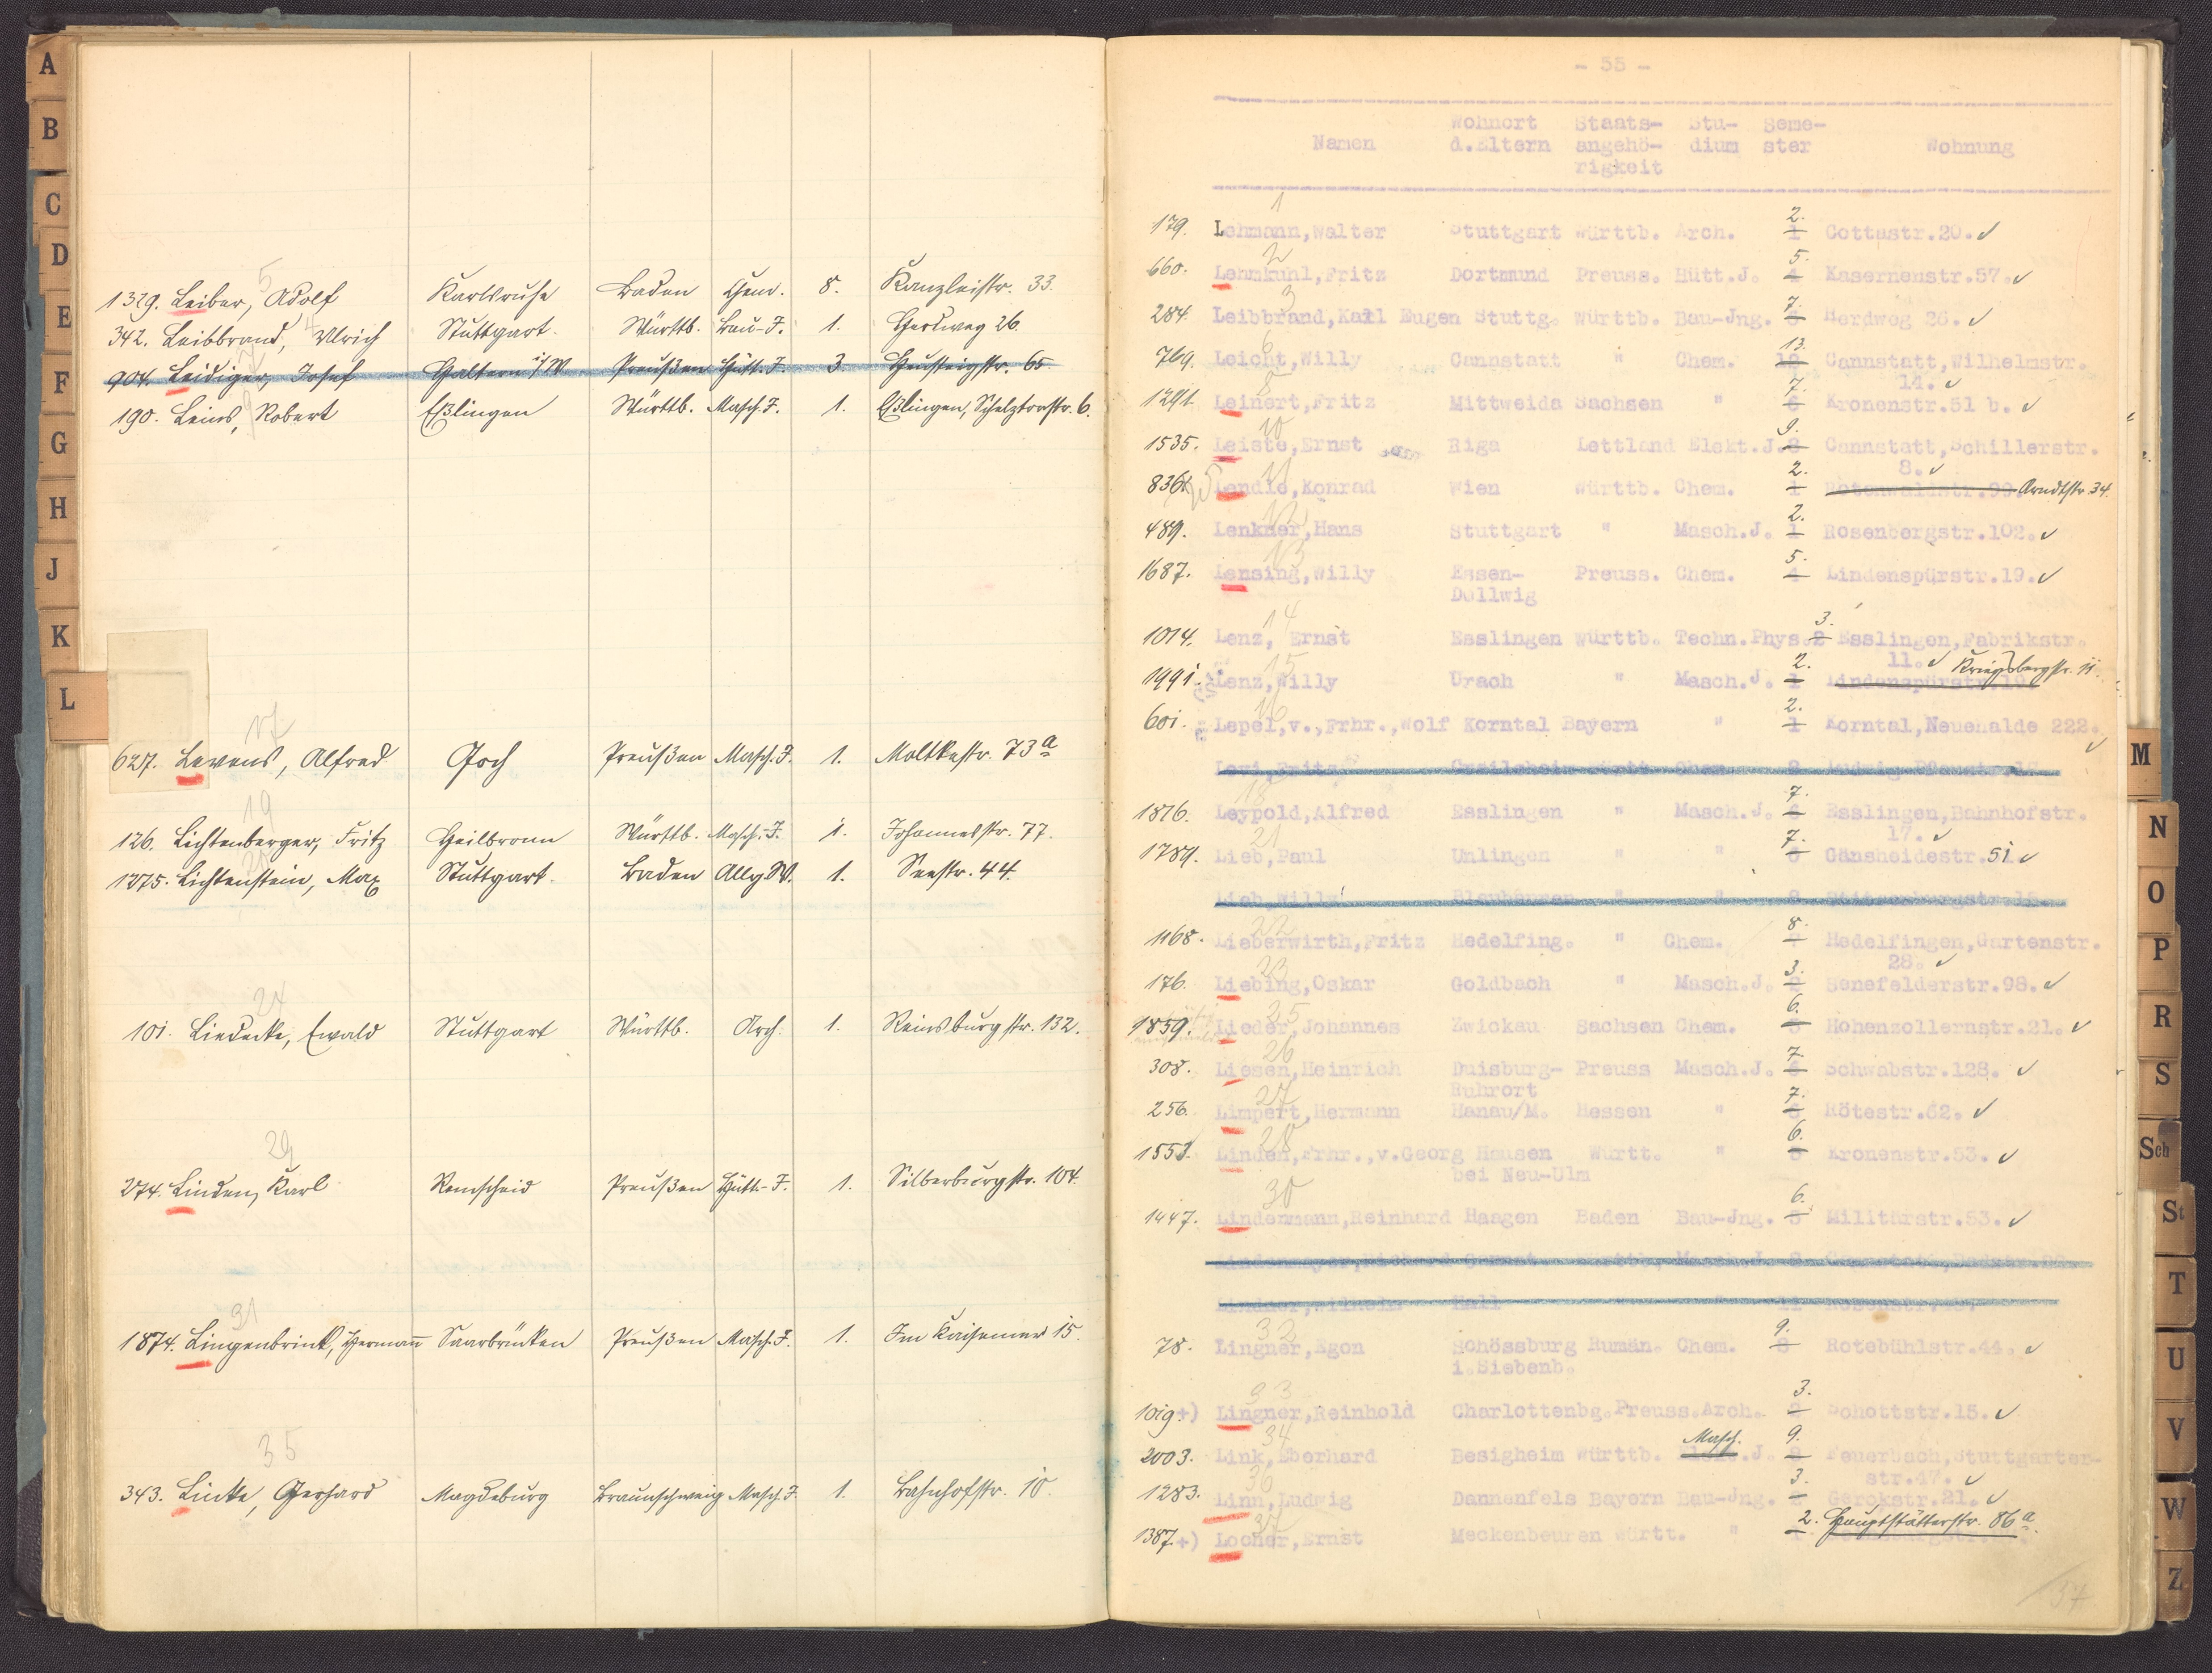 A
B
C
D
E
F
G
H
J
K
L
5
1329. Leiber, Adolf Karlsruhe Baden Chem. 8. Kanzleistr. 33.
342. Leibbrand, Ulrich Stuttgart Württb. Bau-J. 1. Herdweg 26.
904. Leidiger, Josef Haltern i/W Preußen Hütt. J. 3. Heusteigstr. 65
190. Leins, Robert Eßlingen Württb. Masch. J. 1. Eßlingen, Schelztorstr. 6.
17
627. Levens, Alfred Goch Preußen Masch. J. 1. Moltkestr. 73a
19
126. Lichtenberger, Fritz Heilbronn Württb. Masch.-J. 1. Johannesstr. 77.
1275. Lichtenstein, Max Stuttgart. Baden Allg. W. 1. Seestr. 44.
24
101. Liedecke, Ewald Stuttgart Württb. Arch. 1. Reinsburgstr. 132.
29
274. Linden, Karl Remscheid Preußen Hütt.-J. 1. Silberburgstr. 104.
31
1874. Lingenbrink, Hermann Saarbrücken Preußen Masch. J. 1. Im Kaisemer 15.
35
343. Linke, Gerhard Magdeburg Braunschweig Masch. J. 1. Bahnhofstr. 10.
- 55 -
Namen Wohnort d.Eltern Staats-angehö-rigkeit Stu-dium Seme-ster Wohnung
1
179. Lehmann,Walter Stuttgart Württb. Arch. 1 2. Cottastr.20. ✓
2
660. Lehmkuhl,Fritz Dortmund Preuss. Hütt.J. 4 5. Kasernenstr.57. ✓
3
284. Leibbrand,Karl Eugen Stuttg. Württb. Bau-Jng. 7. Herdweg 26. ✓
6
769. Leicht,Willy Cannstatt " Chem. 13. Cannstatt,Wilhelmstr.
14. ✓
8
1291. Leinert,Fritz Mittweida Sachsen " 6 7. Kronenstr.51 b. ✓
10
1535. Leiste,Ernst Riga Lettland Elekt.J. 8 9. Cannstatt,Schillerstr.
8. ✓
11
836. Lendle,Konrad Wien Württb. Chem. 1 2. Rotenwaldstr.99. Arndtstr. 34.
12
489. Lenkner,Hans Stuttgart " Masch.J. 1 2. Rosenbergstr.102. ✓
13
1687. Lensing,Willy Essen- Preuss. Chem. 4 5. Lindenspürstr.19. ✓
Dellwig
14
1014. Lenz, Ernst Esslingen Württb. Techn.Phys. 2 3. Esslingen,Fabrikstr.
11. ✓
15
1991. Lenz,Willy Urach " Masch.J. 1 2. Lindenspürstr.19. Kriegsbergstr. 11.
16
601. Lepel,v.,Frhr.,Wolf Korntal Bayern " 1 2. Korntal,Neuehalde 222. ✓
Levi,Fritz
18
1816. Leypold,Alfred Esslingen " Masch.J. 6 7. Esslingen,Bahnhofstr.
17. ✓
21
1789. Lieb,Paul Unlingen " " 7. Gänsheidestr. 51 ✓
Lieb,Willy
22
1168. Lieberwirth,Fritz Hedelfing. " Chem. 8. Hedelfingen,Gartenstr.
28. ✓
23
176. Liebing,Oskar Goldbach " Masch.J. 2 3. Senefelderstr.98. ✓
25
1859. Lieder,Johannes Zwickau Sachsen Chem. 5 6. Hohenzollernstr.21. ✓
26
308. Liesen,Heinrich Duisburg- Preuss Masch.J. 6 7. Schwabstr.128. ✓
Ruhrort
27
256. Limpert,Hermann Hanau/M. Hessen " 6 7. Rötestr.62. ✓
28
1553. Linden,Frhr.,v.Georg Hausen Württ. " 5 6. Kronenstr.53. ✓
bei Neu-Ulm
30
1447. Lindenmann,Reinhard Haagen Baden Bau-Jng. 5 6. Militärstr.53. ✓
Lindenmeyer,Richard
Lindner,Wilhelm Hall
32
78. Lingner,Egon Schössburg Rumän. Chem. 8 9. Rotebühlstr.44. ✓
i.Siebenb.
33
1019. +) Lingner,Reinhold Charlottenbg. Preuss. Arch. 2 3. Schottstr.15. ✓
34
2003. Link,Eberhard Besigheim Württb. Masch. J. 8 9. Feuerbach,Stuttgarter-
str.47. ✓
36
1283. Linn,Ludwig Dannenfels Bayern Bau-Jng. 2 3. Gerokstr.21. ✓
37
1387. +) Locher,Ernst Meckenbeuren Württ. " 1 2. Hauptstätterstr. 86a.
37
M
N
O
P
R
S
Sch
St
T
U
V
W
Z